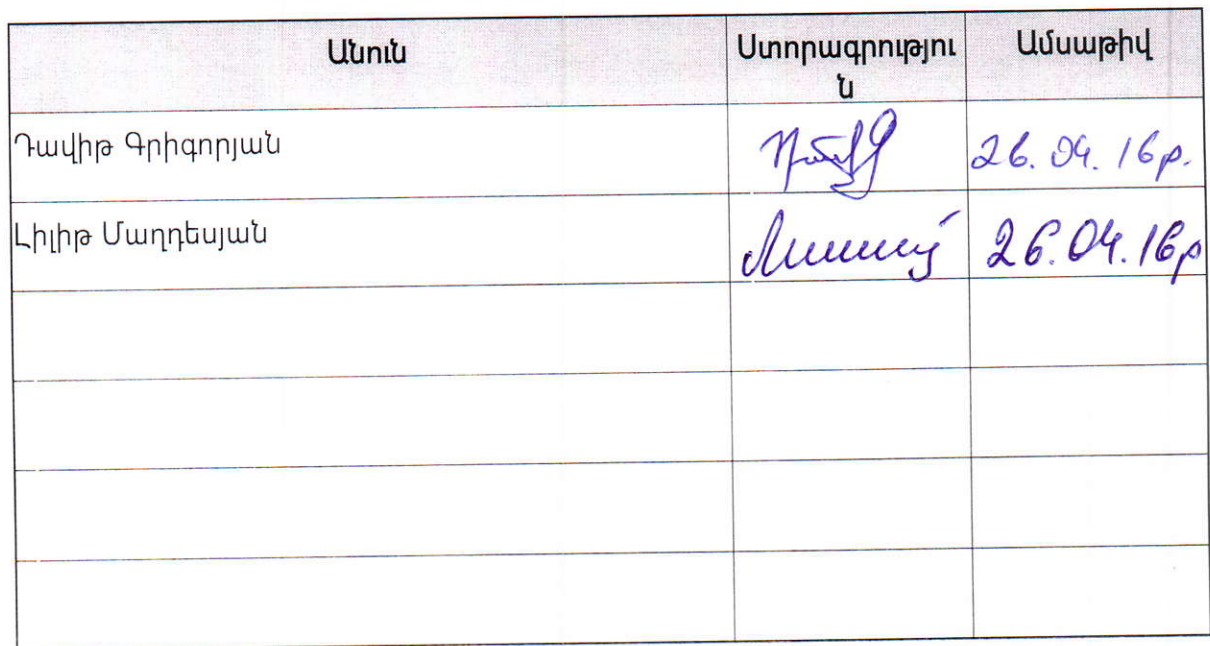 Անուն Ստորագրությու Ամսաթիվ
ն
Դավիթ Գրիգորյան 26.04.16թ.
Լիլիթ Մաղդեսյան 26.04.16թ